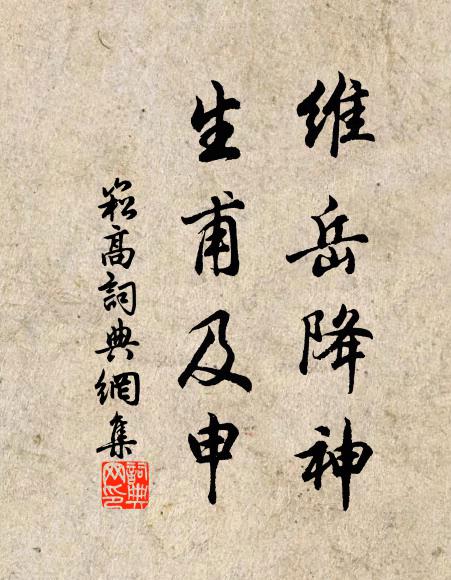 維岳降神
生甫及申
崧高詞典網集
詞典網印